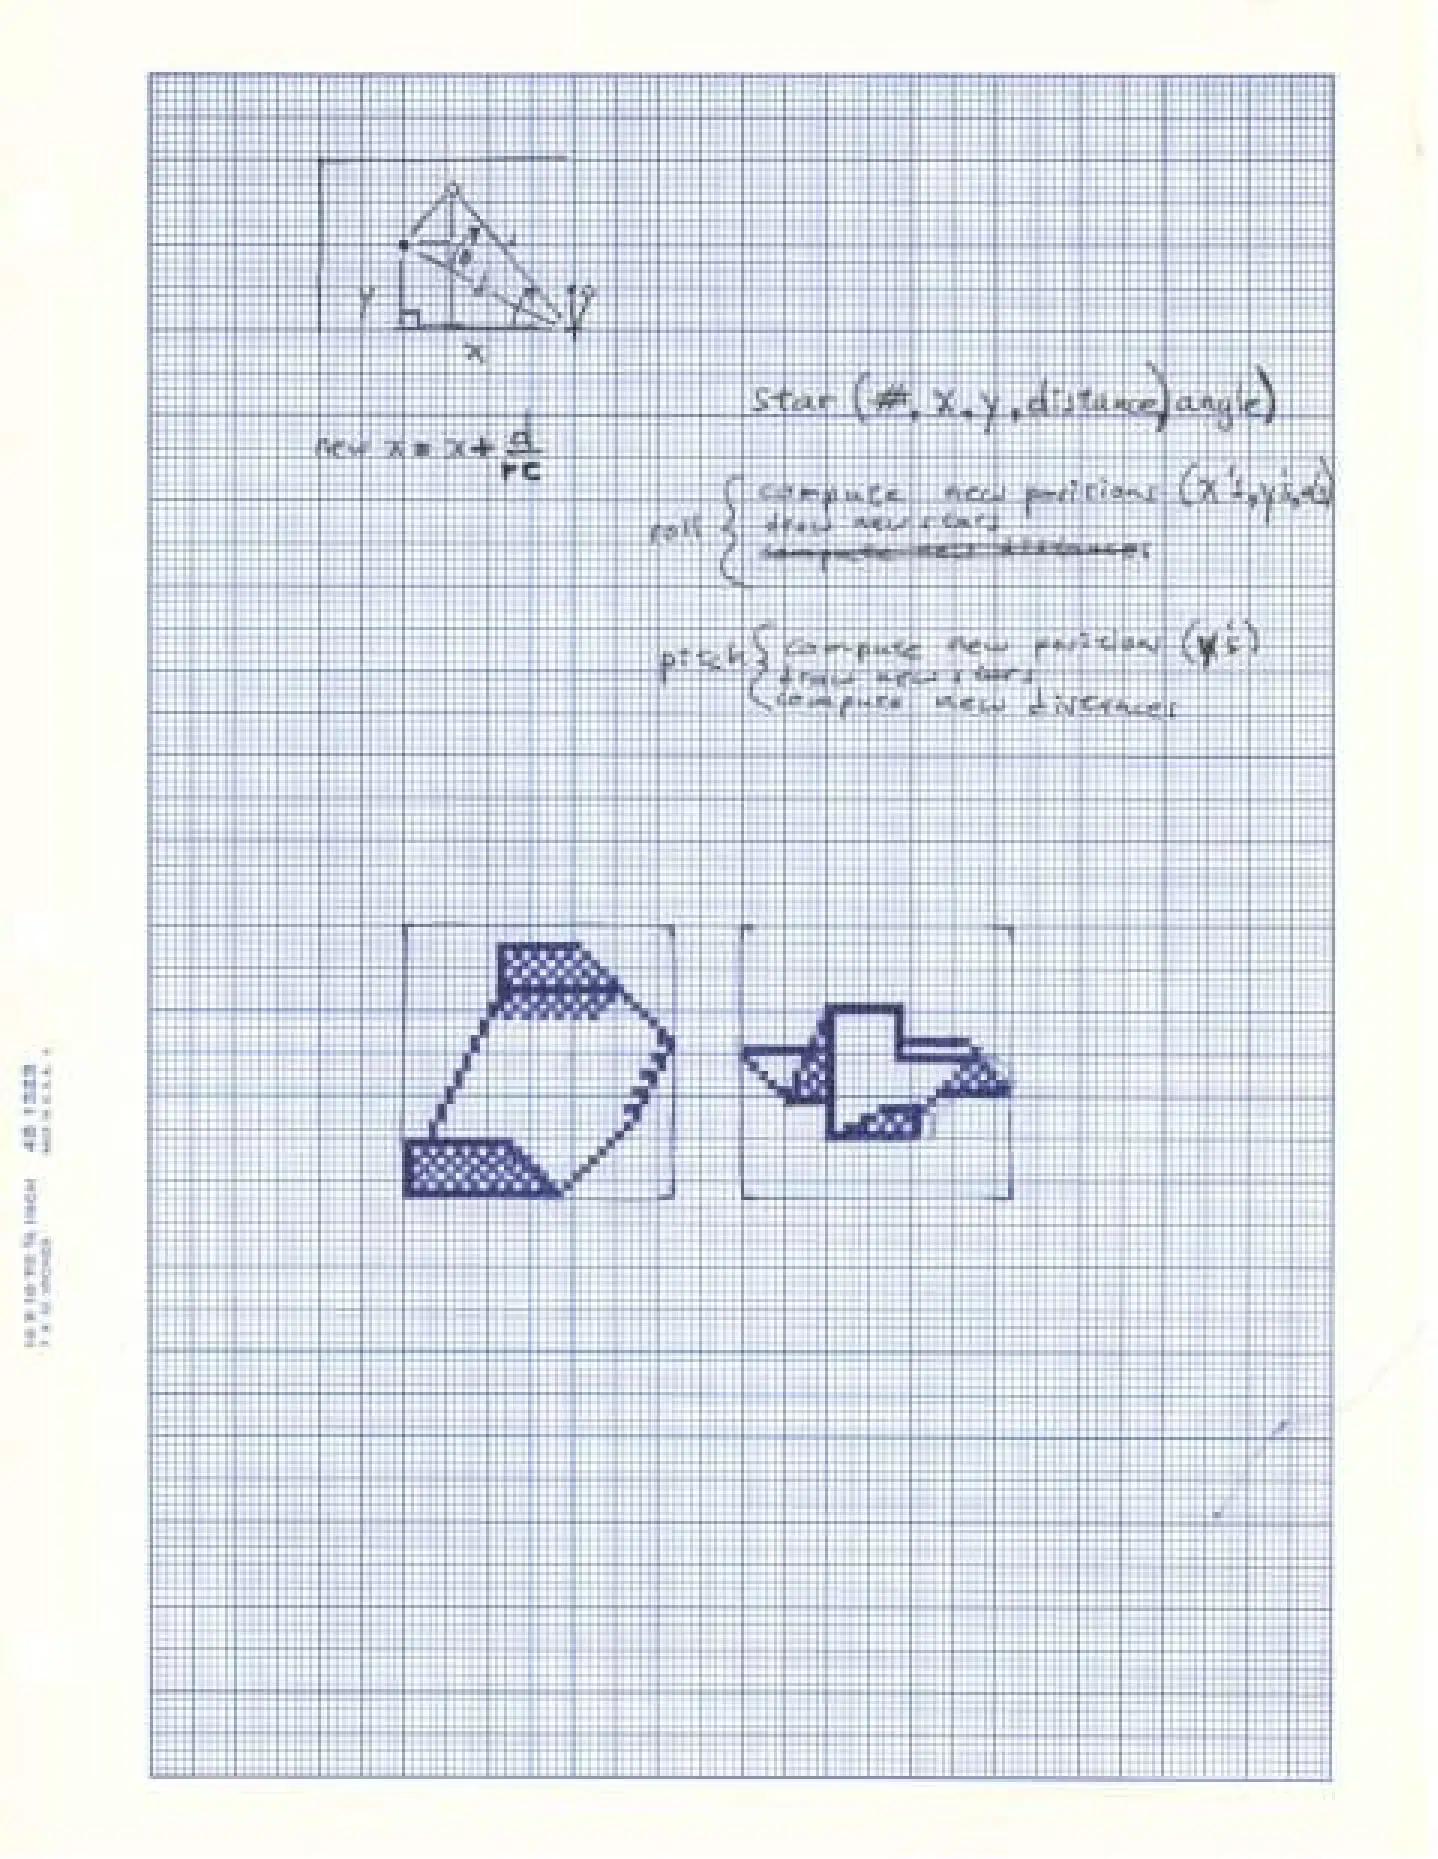 y
x
d
new x = x + d/rc
star (#, x, y, distance) angle)
roll { compute new positions (x's, y's, d's)
draw new stars
compute new distances
pitch { compute new positions (y's)
draw new stars
compute new distances
10 X 10 TO ½ INCH 46 1323
7 X 10 INCHES